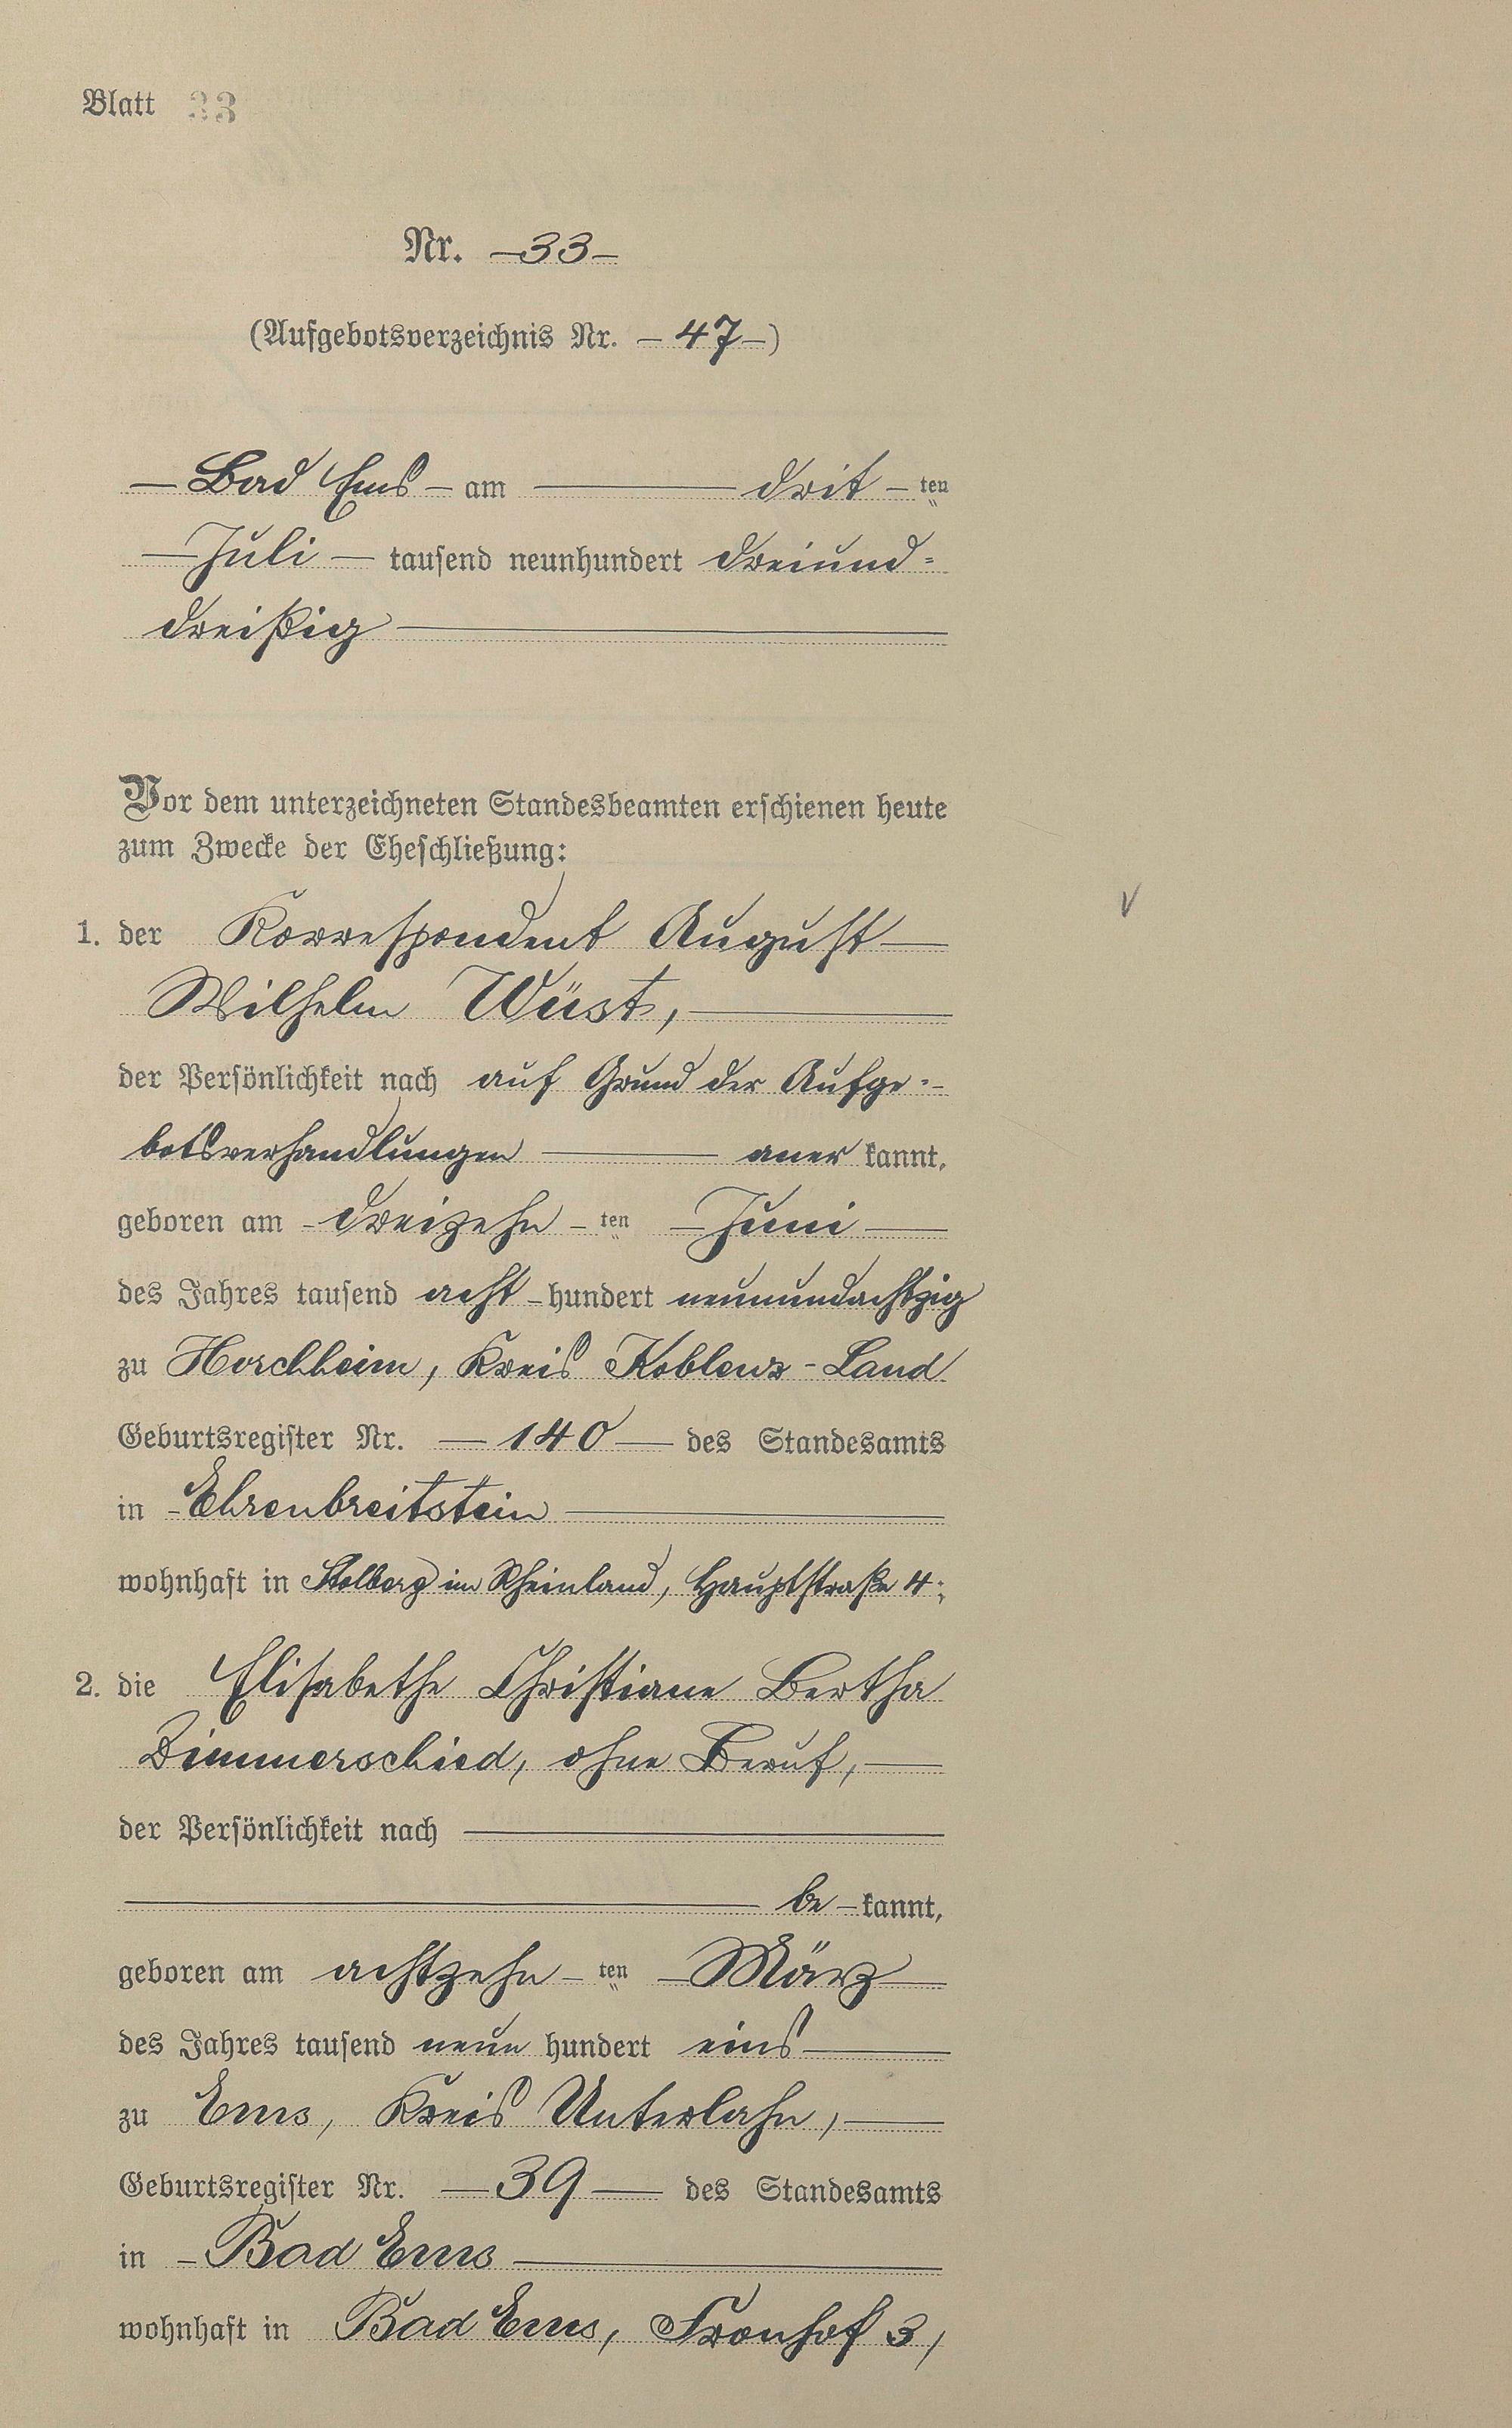 Blatt 33
Nr. –33–
(Aufgebotsverzeichnis Nr. – 47 –)
– Bad Ems – am — drit – ten
— Juli — tausend neunhundert dreiund=
dreißig —
Vor dem unterzeichneten Standesbeamten erschienen heute
zum Zwecke der Eheschließung:
1. der Korrespondent August —
Wilhelm Wüst, —
der Persönlichkeit nach auf Grund der Aufge=
botsverhandlungen — aner kannt,
geboren am – dreizehn – ten — Juni —
des Jahres tausend acht – hundert neunundachtzig
zu Horchheim, Kreis Koblenz-Land
Geburtsregister Nr. — 140 — des Standesamts
in – Ehrenbreitstein —
wohnhaft in Stolberg im Rheinland, Hauptstraße 4;
2. die Elisabethe Christiane Bertha
Zimmerschied, ohne Beruf, —
der Persönlichkeit nach —
— be – kannt,
geboren am achtzehn – ten — März —
des Jahres tausend neun hundert eins —
zu Ems, Kreis Unterlahn, —
Geburtsregister Nr. — 39 — des Standesamts
in – Bad Ems —
wohnhaft in Bad Ems, Fronhof 3,